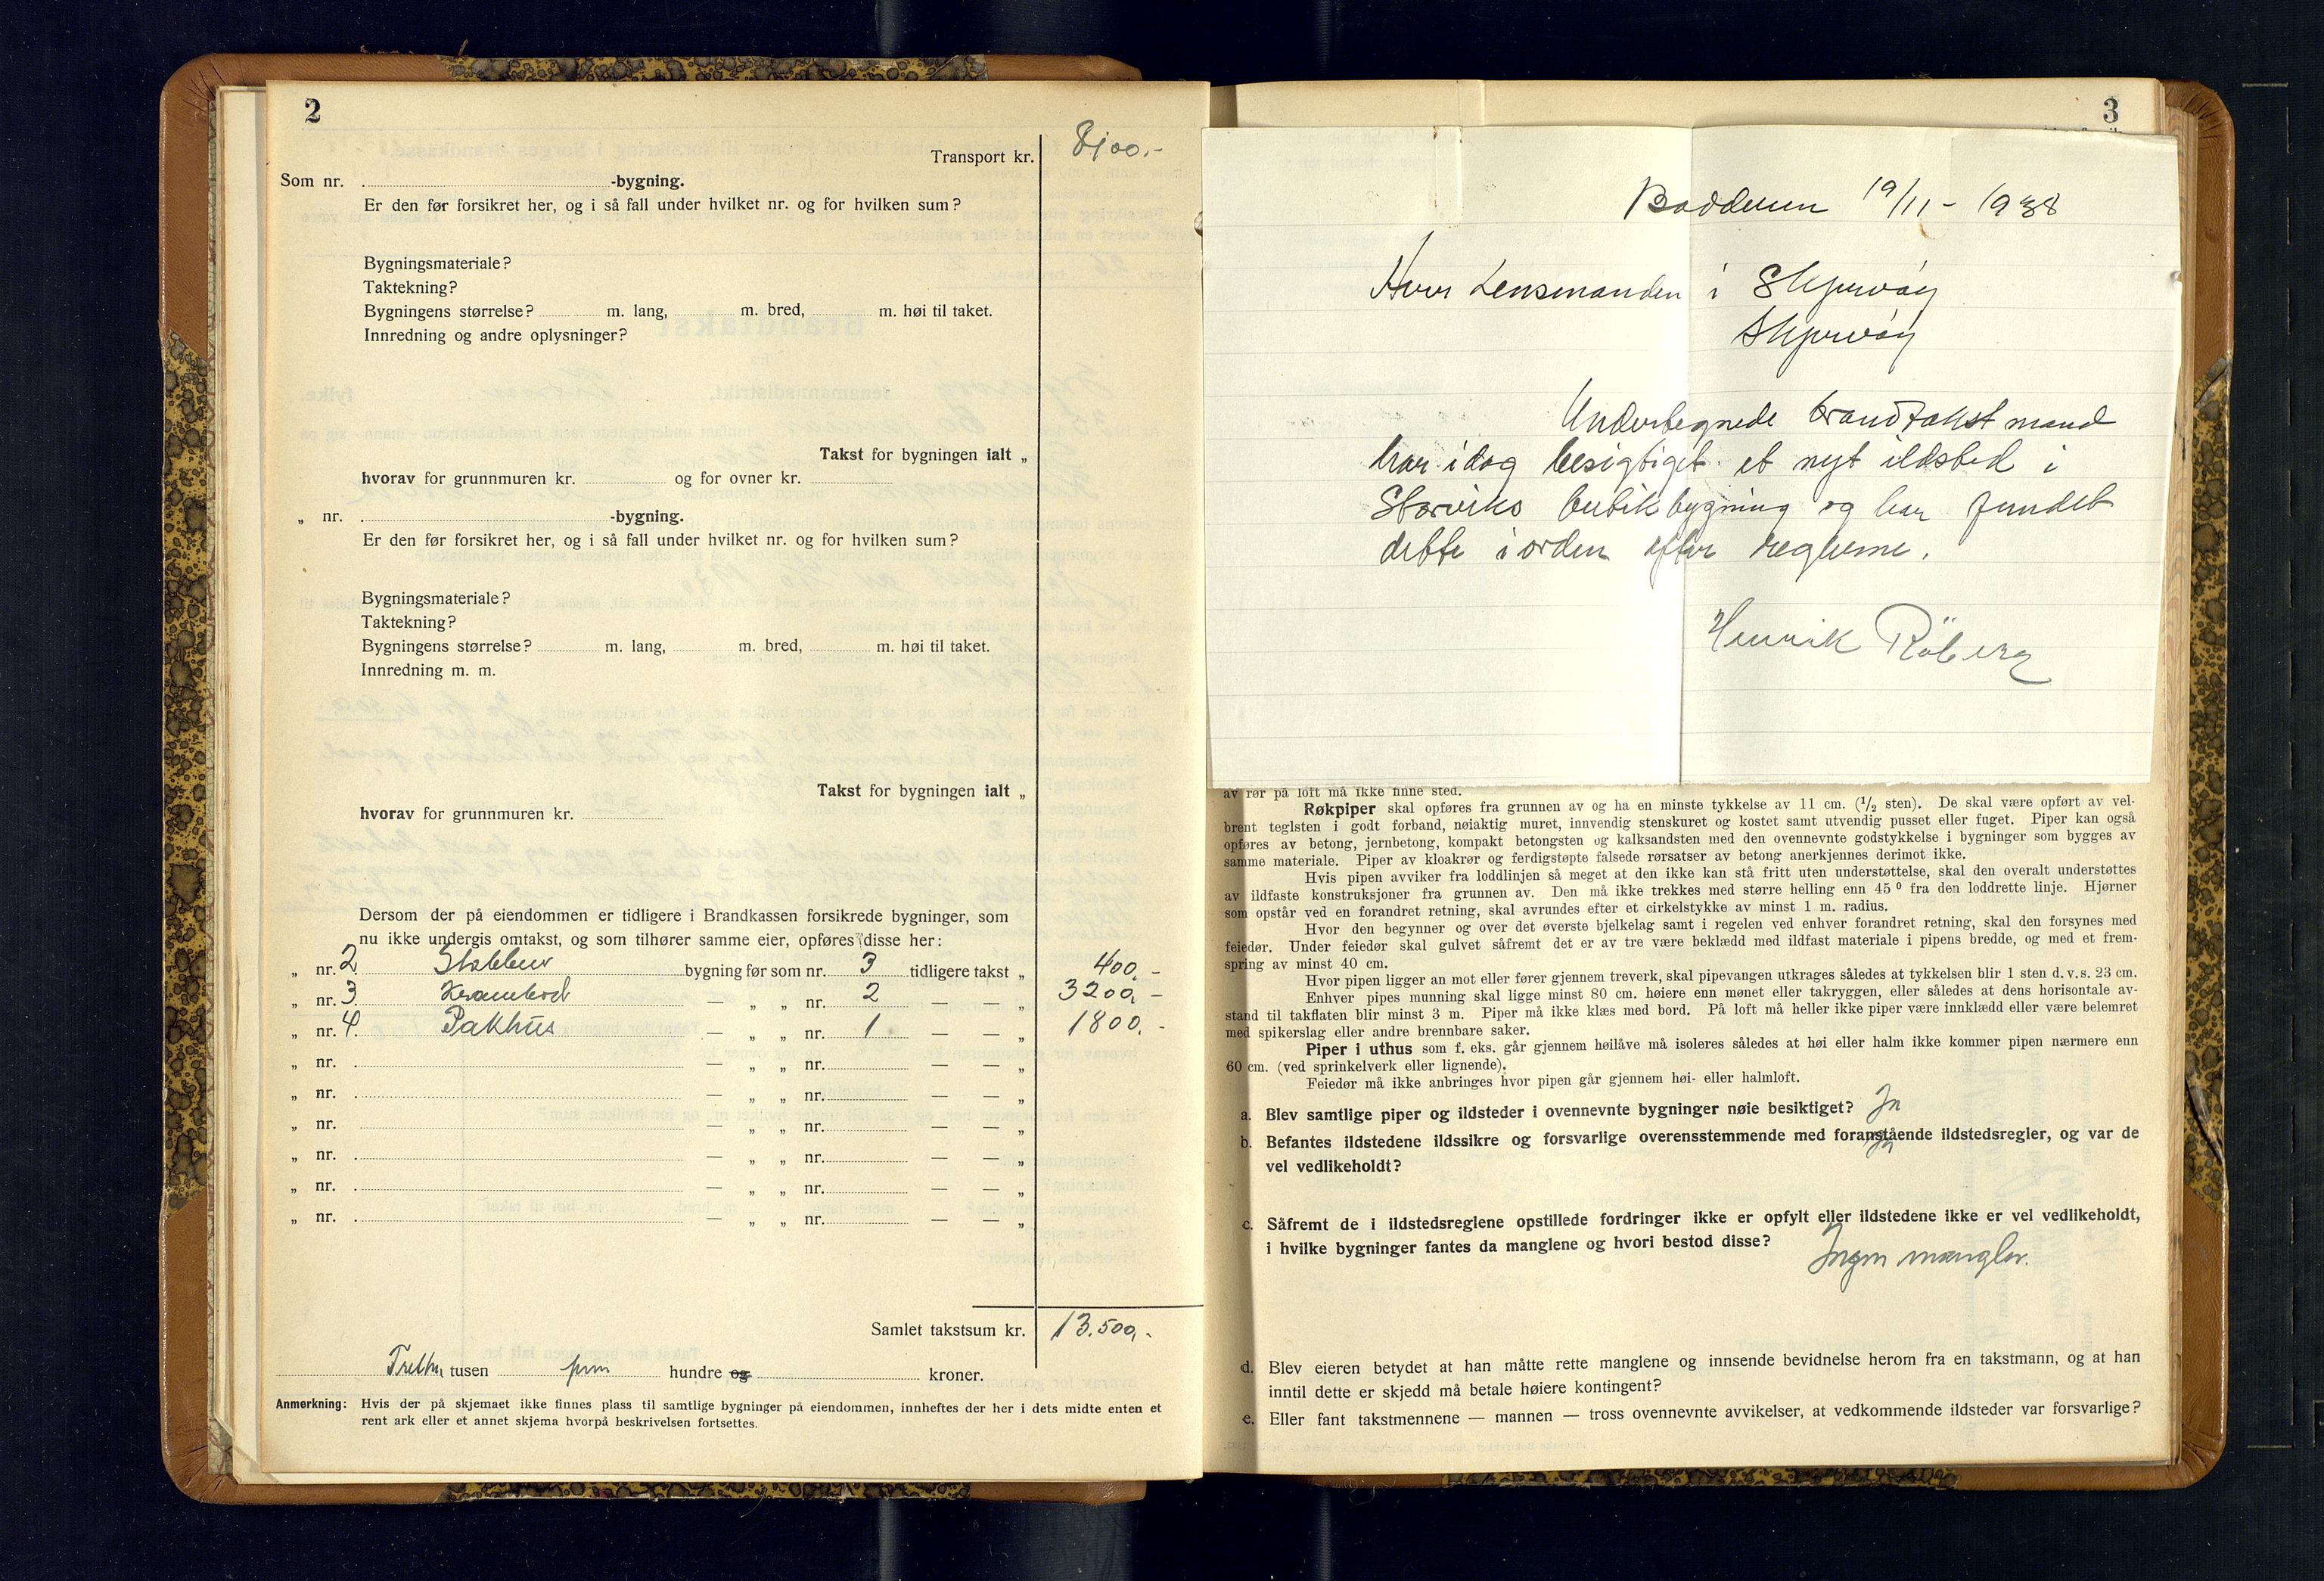 2
Transport kr. 8100.-
Som nr. -bygning.
Er den før forsikret her, og i så fall under hvilket nr. og for hvilken sum?
Bygningsmateriale?
Taktekning?
Bygningens størrelse? m. lang, m. bred, m. høi til taket.
Innredning og andre oplysninger?
Takst for bygningen ialt „
hvorav for grunnmuren kr. og for ovner kr.
„ nr. -bygning.
Er den før forsikret her, og i så fall under hvilket nr. og for hvilken sum?
Bygningsmateriale?
Taktekning?
Bygningens størrelse? m. lang, m. bred, m. høi til taket.
Innredning m. m.
Takst for bygningen ialt „
hvorav for grunnmuren kr.
Dersom der på eiendommen er tidligere i Brandkassen forsikrede bygninger, som
nu ikke undergis omtakst, og som tilhører samme eier, opføres disse her:
„ nr. 2 Stabbur bygning før som nr. 3 tidligere takst „ 400,-
„ nr. 3 Krambod — „ „ nr. 2 — — „ 3200,-
„ nr. 4 Pakhus — „ „ nr. 1 — — „ 1800.-
„ nr. — „ „ nr. — — „
„ nr. — „ „ nr. — — „
„ nr. — „ „ nr. — — „
„ nr. — „ „ nr. — — „
„ nr. — „ „ nr. — — „
„ nr. — „ „ nr. — — „
Samlet takstsum kr. 13.500,-
Tretten tusen fem hundre og kroner.
Anmerkning: Hvis der på skjemaet ikke finnes plass til samtlige bygninger på eiendommen, innheftes der her i dets midte enten et
rent ark eller et annet skjema hvorpå beskrivelsen fortsettes.
3
Badderen 19/11 - 1938
Herr Lensmanden i Skjervøy
Skjervøy
Undertegnede brandtakstmand
har idag besigtiget et nyt ildsted i
Storviks butikbygning og har fundet
dette i orden efter reglerne.
Henrik Røberg
av rør på loft må ikke finne sted.
Røkpiper skal opføres fra grunnen av og ha en minste tykkelse av 11 cm. (1/2 sten). De skal være opført av vel-
brent teglsten i godt forband, nøiaktig muret, innvendig stenskuret og kostet samt utvendig pusset eller fuget. Piper kan også
opføres av betong, jernbetong, kompakt betongsten og kalksandsten med den ovennevnte godstykkelse i bygninger som bygges av
samme materiale. Piper av kloakrør og ferdigstøpte falsede rørsatser av betong anerkjennes derimot ikke.
Hvis pipen avviker fra loddlinjen så meget at den ikke kan stå fritt uten understøttelse, skal den overalt understøttes
av ildfaste konstruksjoner fra grunnen av. Den må ikke trekkes med større helling enn 45⁰ fra den loddrette linje. Hjørner
som opstår ved en forandret retning, skal avrundes efter et cirkelstykke av minst 1 m. radius.
Hvor den begynner og over det øverste bjelkelag samt i regelen ved enhver forandret retning, skal den forsynes med
feiedør. Under feiedør skal gulvet såfremt det er av tre være beklædd med ildfast materiale i pipens bredde, og med et frem-
spring av minst 40 cm.
Hvor pipen ligger an mot eller fører gjennem treverk, skal pipevangen utkrages således at tykkelsen blir 1 sten d. v. s. 23 cm.
Enhver pipes munning skal ligge minst 80 cm. høiere enn mønet eller takryggen, eller således at dens horisontale av-
stand til takflaten blir minst 3 m. Piper må ikke klæs med bord. På loft må heller ikke piper være innklædd eller være belemret
med spikerslag eller andre brennbare saker.
Piper i uthus som f. eks. går gjennem høilåve må isoleres således at høi eller halm ikke kommer pipen nærmere enn
60 cm. (ved sprinkelverk eller lignende).
Feiedør må ikke anbringes hvor pipen går gjennem høi- eller halmloft.
a. Blev samtlige piper og ildsteder i ovennevnte bygninger nøie besiktiget? Ja
b. Befantes ildstedene ildssikre og forsvarlige overensstemmende med foranstående ildstedsregler, og var de
vel vedlikeholdt? Ja
c. Såfremt de i ildstedsreglene opstillede fordringer ikke er opfylt eller ildstedene ikke er vel vedlikeholdt,
i hvilke bygninger fantes da manglene og hvori bestod disse? Ingen mangler.
d. Blev eieren betydet at han måtte rette manglene og innsende bevidnelse herom fra en takstmann, og at han
inntil dette er skjedd må betale høiere kontingent?
e. Eller fant takstmennene — mannen — tross ovennevnte avvikelser, at vedkommende ildsteder var forsvarlige?